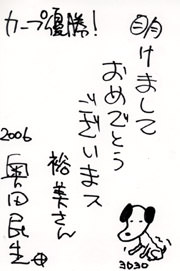 明けまして
おめでとう
ございまス
カープ優勝!
裕美さん
2006
奥田民生
3030